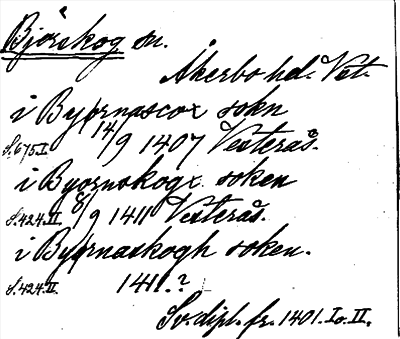 Björskog sn.
Åkerbo hd. Vst.
i Byornascox sokn
S. 675. I. 14/9 1407 Vesterås.
i Byornokogx soken
S. 424. II. 8/9 1411 Vesterås.
i Byornaskogh soken.
S. 424. II. 1411.?
Sv. dipl. fr. 1401. I o. II.